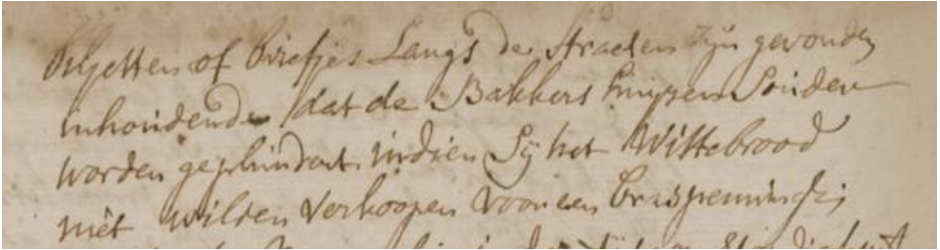 Biljetten of Briefjes Langs de Straeten zijn gevonden
inhoudende dat de Bakkers huijzen Souden
worden geplundert indien Sij het Wittebrood
niet wilden verkoopen voor een braspenning